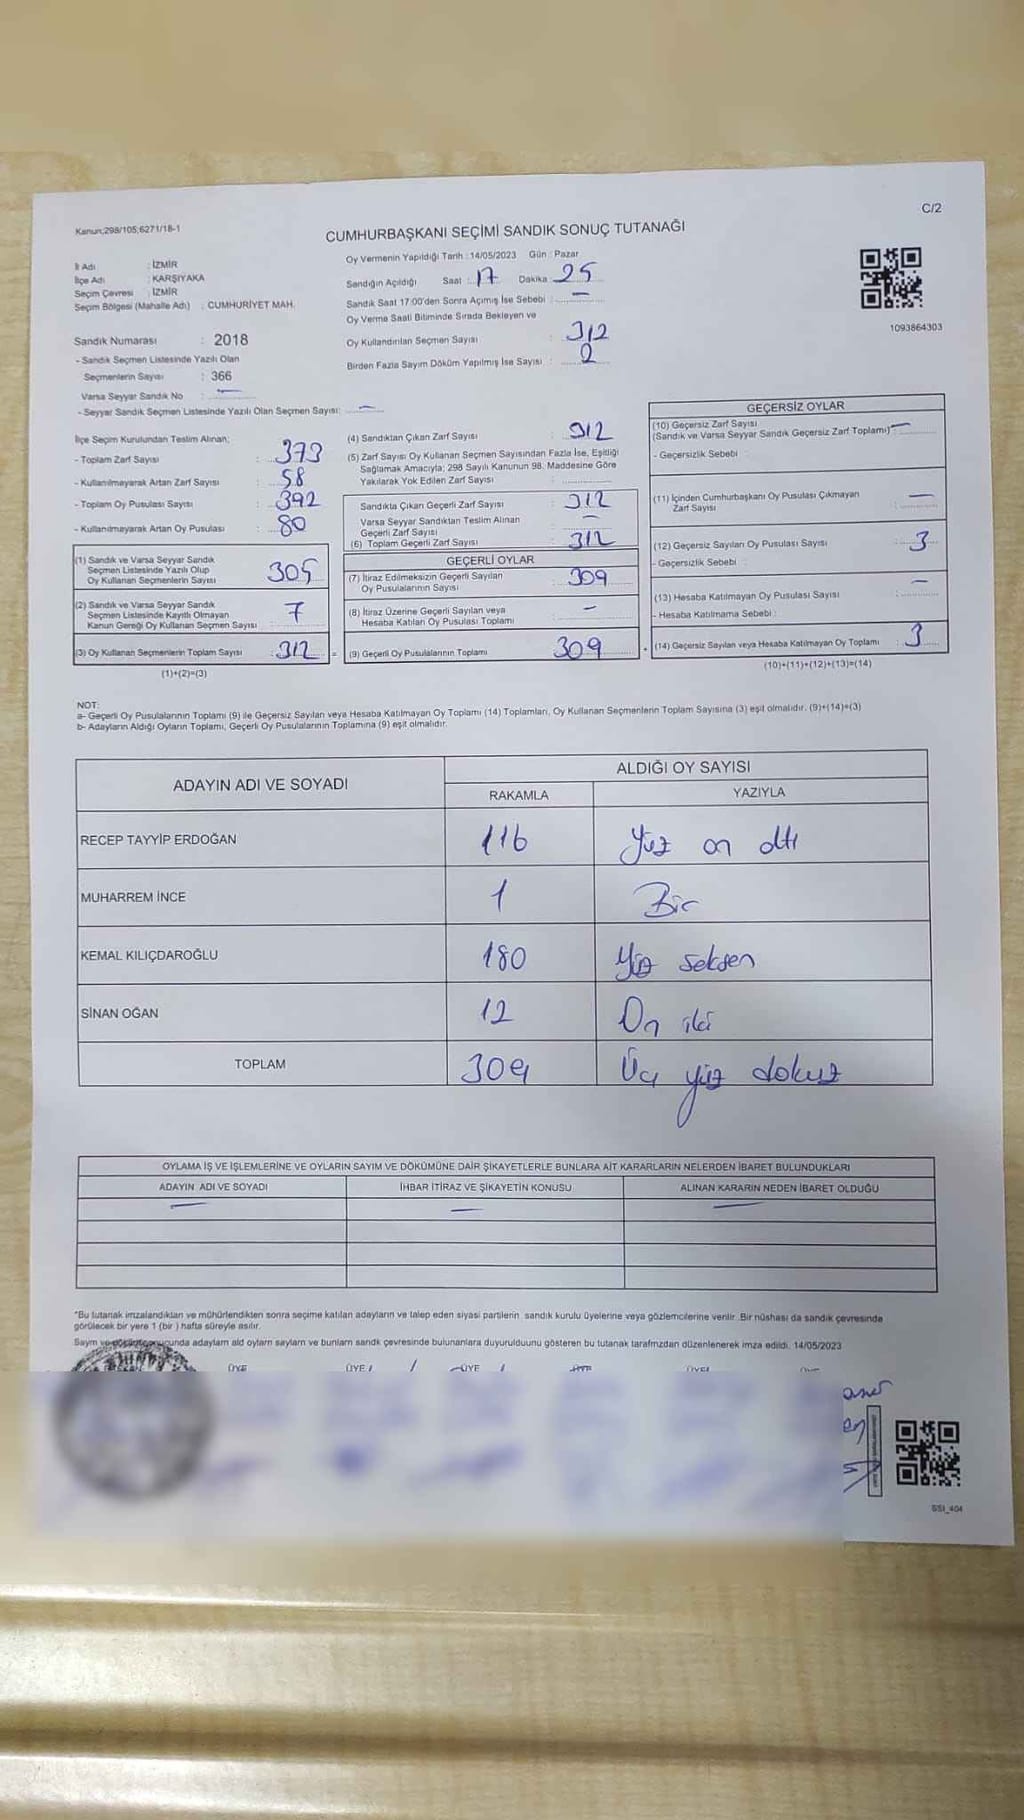 Kanun;298/105;6271/18-1
C/2
CUMHURBAŞKANI SEÇİMİ SANDIK SONUÇ TUTANAĞI
İl Adı : İZMİR
İlçe Adı : KARŞIYAKA
Seçim Çevresi : İZMİR
Seçim Bölgesi (Mahalle Adı) : CUMHURİYET MAH.
Sandık Numarası : 2018
- Sandık Seçmen Listesinde Yazılı Olan
Seçmenlerin Sayısı : 366
Varsa Seyyar Sandık No : —
- Seyyar Sandık Seçmen Listesinde Yazılı Olan Seçmen Sayısı: —
Oy Vermenin Yapıldığı Tarih : 14/05/2023 Gün : Pazar
Sandığın Açıldığı Saat : 17 Dakika : 25
Sandık Saat 17:00'den Sonra Açımış İse Sebebi : —
Oy Verme Saati Bitiminde Sırada Bekleyen ve
Oy Kullandırılan Seçmen Sayısı : 312
Birden Fazla Sayım Döküm Yapılmış İse Sayısı : 0
1093864303
İlçe Seçim Kurulundan Teslim Alınan;
- Toplam Zarf Sayısı : 373
- Kullanılmayarak Artan Zarf Sayısı : 58
- Toplam Oy Pusulası Sayısı : 392
- Kullanılmayarak Artan Oy Pusulası : 80
(1) Sandık ve Varsa Seyyar Sandık
Seçmen Listesinde Yazılı Olup
Oy Kullanan Seçmenlerin Sayısı : 305
(2) Sandık ve Varsa Seyyar Sandık
Seçmen Listesinde Kayıtlı Olmayan
Kanun Gereği Oy Kullanan Seçmen Sayısı : 7
(3) Oy Kullanan Seçmenlerin Toplam Sayısı : 312
(1)+(2)=(3)
(4) Sandıktan Çıkan Zarf Sayısı : 312
(5) Zarf Sayısı Oy Kullanan Seçmen Sayısından Fazla İse, Eşitliği
Sağlamak Amacıyla; 298 Sayılı Kanunun 98. Maddesine Göre
Yakılarak Yok Edilen Zarf Sayısı :
Sandıkta Çıkan Geçerli Zarf Sayısı : 312
Varsa Seyyar Sandıktan Teslim Alınan
Geçerli Zarf Sayısı : —
(6) Toplam Geçerli Zarf Sayısı : 312
GEÇERLİ OYLAR
(7) İtiraz Edilmeksizin Geçerli Sayılan
Oy Pusulalarının Sayısı : 309
(8) İtiraz Üzerine Geçerli Sayılan veya
Hesaba Katılan Oy Pusulası Toplamı : —
(9) Geçerli Oy Pusulalarının Toplamı : 309
GEÇERSİZ OYLAR
(10) Geçersiz Zarf Sayısı
(Sandık ve Varsa Seyyar Sandık Geçersiz Zarf Toplamı) —
- Geçersizlik Sebebi :
(11) İçinden Cumhurbaşkanı Oy Pusulası Çıkmayan
Zarf Sayısı : —
(12) Geçersiz Sayılan Oy Pusulası Sayısı : 3
- Geçersizlik Sebebi :
(13) Hesaba Katılmayan Oy Pusulası Sayısı : —
- Hesaba Katılmama Sebebi :
(14) Geçersiz Sayılan veya Hesaba Katılmayan Oy Toplamı : 3
(10)+(11)+(12)+(13)=(14)
NOT:
a- Geçerli Oy Pusulalarının Toplamı (9) ile Geçersiz Sayılan veya Hesaba Katılmayan Oy Toplamı (14) Toplamları, Oy Kullanan Seçmenlerin Toplam Sayısına (3) eşit olmalıdır. (9)+(14)=(3)
b- Adayların Aldığı Oyların Toplamı, Geçerli Oy Pusulalarının Toplamına (9) eşit olmalıdır.
ADAYIN ADI VE SOYADI
ALDIĞI OY SAYISI
RAKAMLA YAZIYLA
RECEP TAYYİP ERDOĞAN 116 Yüz on altı
MUHARREM İNCE 1 Bir
KEMAL KILIÇDAROĞLU 180 Yüz seksen
SİNAN OĞAN 12 On iki
TOPLAM 309 Üç yüz dokuz
OYLAMA İŞ VE İŞLEMLERİNE VE OYLARIN SAYIM VE DÖKÜMÜNE DAİR ŞİKAYETLERLE BUNLARA AİT KARARLARIN NELERDEN İBARET BULUNDUKLARI
ADAYIN ADI VE SOYADI İHBAR İTİRAZ VE ŞİKAYETİN KONUSU ALINAN KARARIN NEDEN İBARET OLDUĞU
— — —
*Bu tutanak imzalandıktan ve mühürlendikten sonra seçime katılan adayların ve talep eden siyasi partilerin sandık kurulu üyelerine veya gözlemcilerine verilir. Bir nüshası da sandık çevresinde
görülecek bir yere 1 (bir ) hafta süreyle asılır.
Sayım ve sonucunda adayların ald oyların sayları ve bunların sandk çevresinde bulunanlara duyurulduunu gösteren bu tutanak tarafmzdan düzenlenerek imza edildi. 14/05/2023
ÜYE ÜYE ÜYE
SSI_404